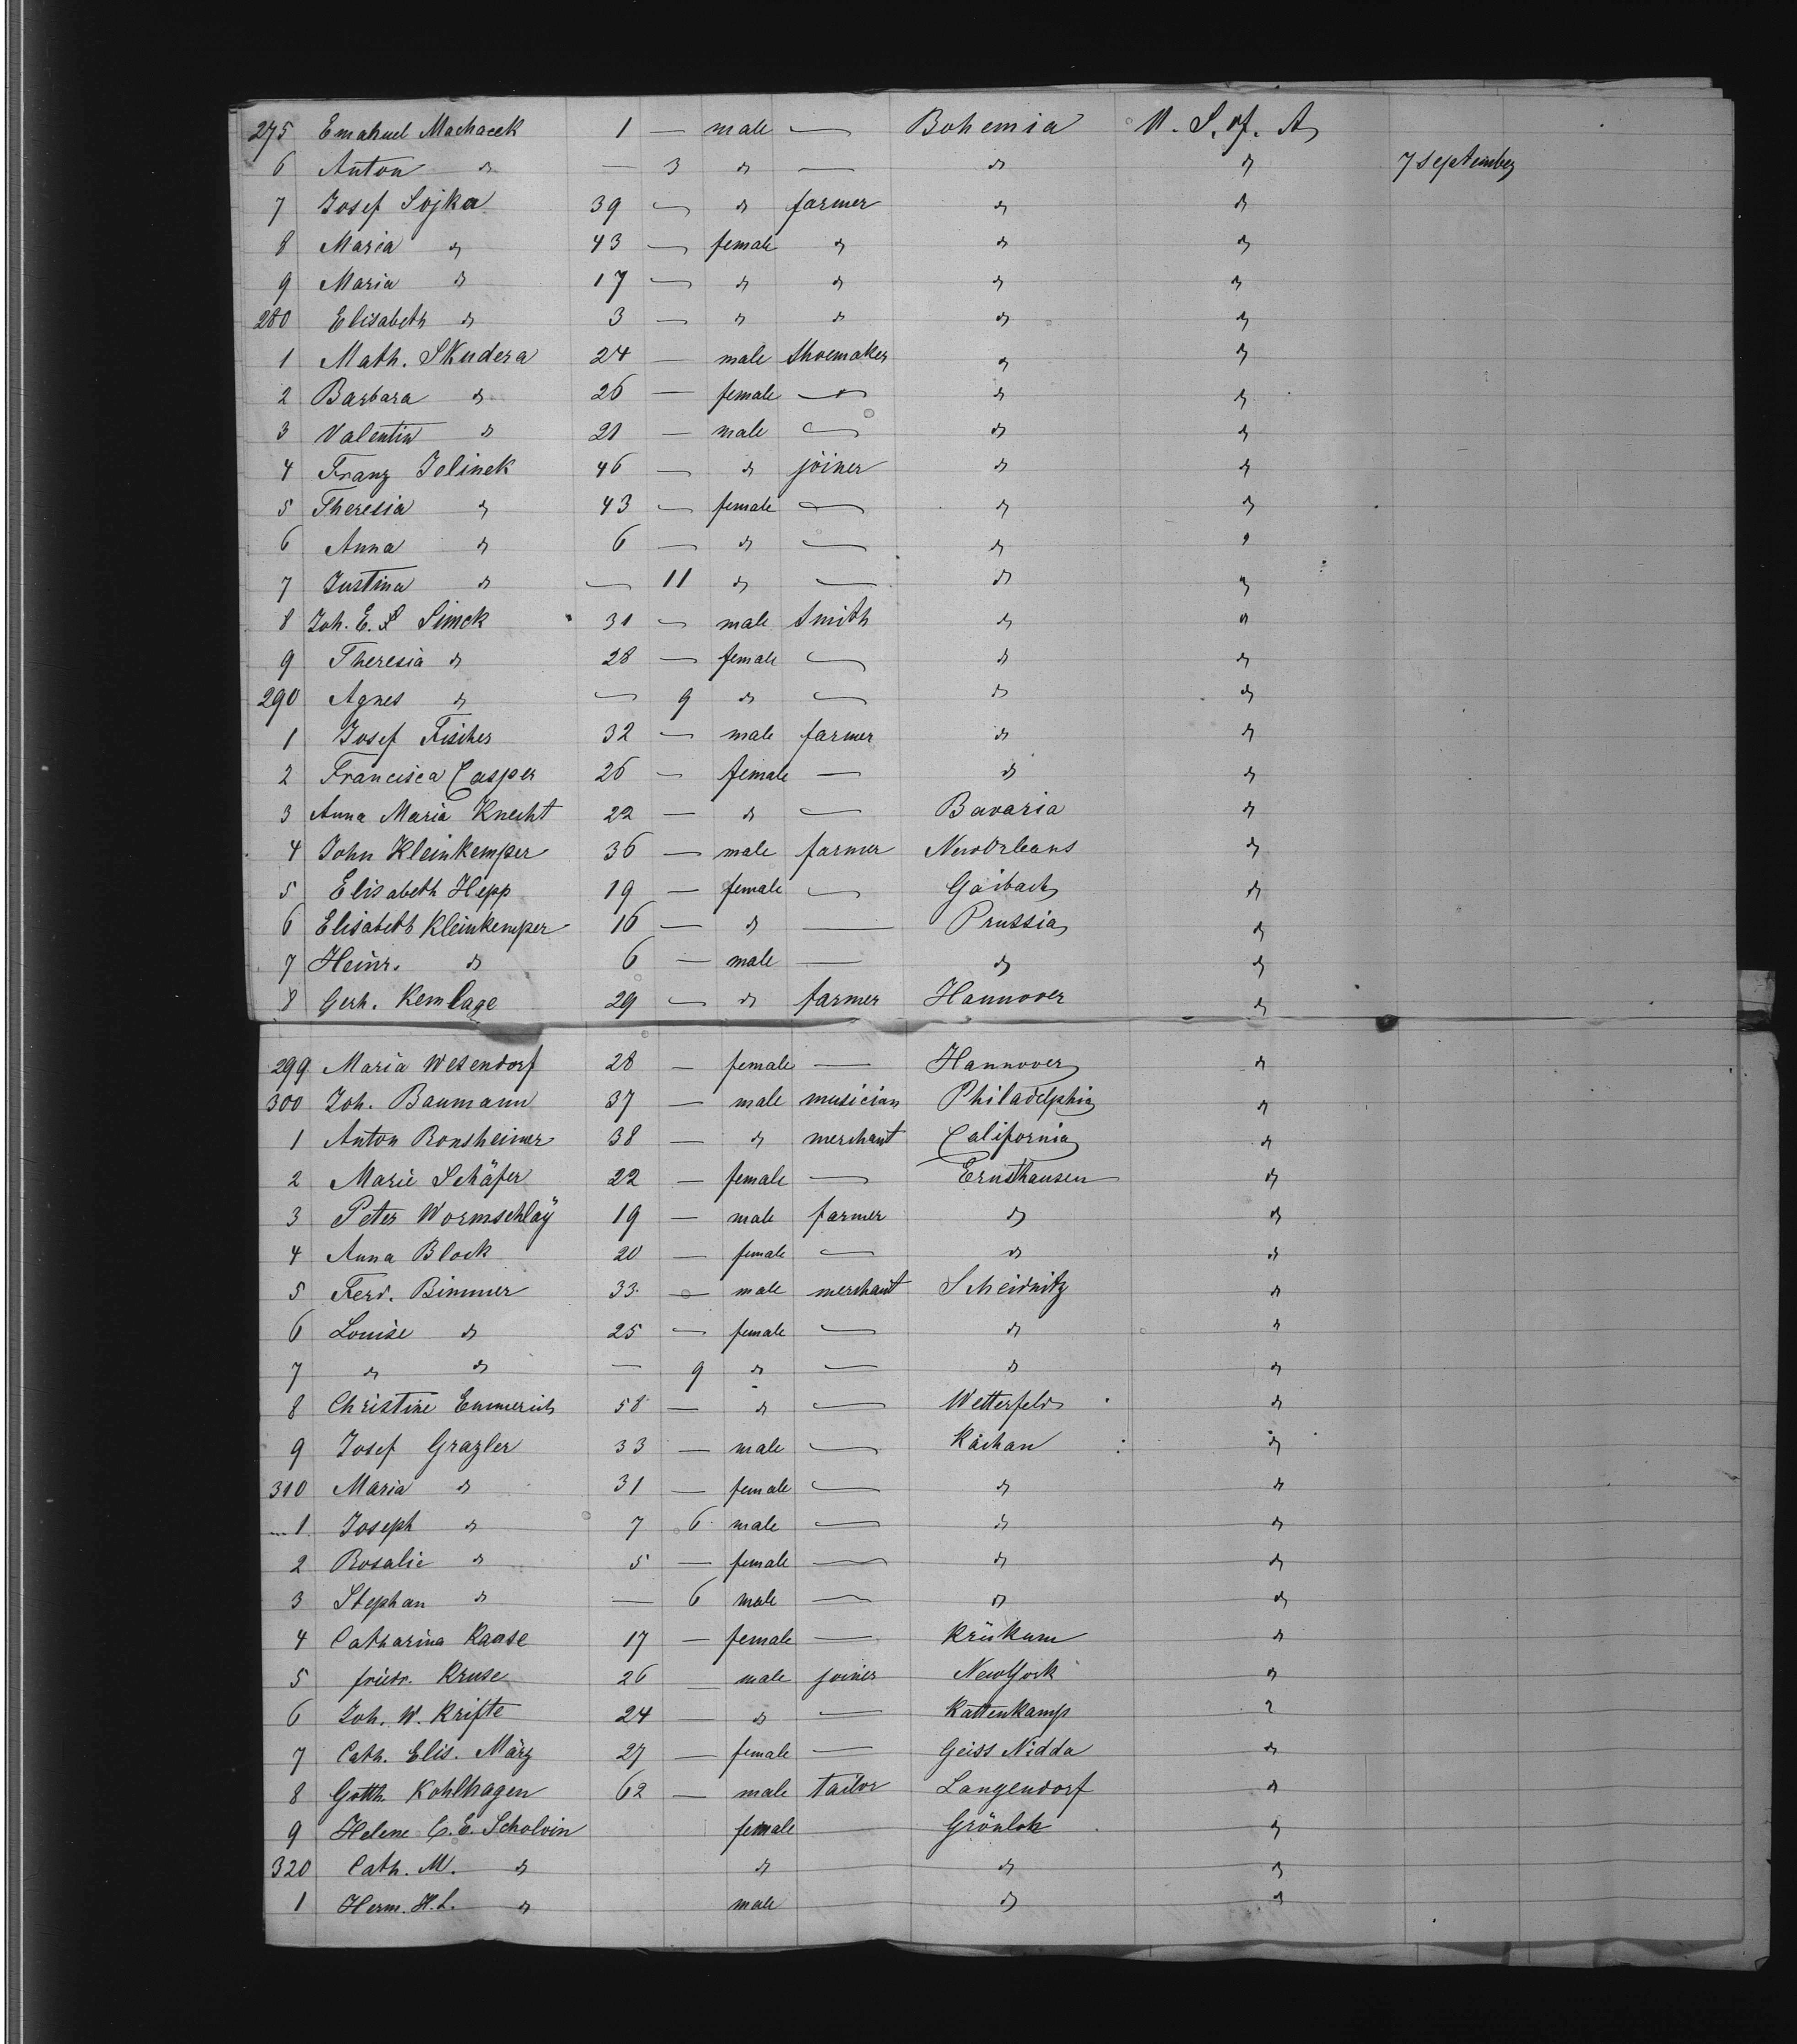 275 Emanuel Machacek 1 — male — Bohemia U. S. of. A
6 Anton " — 3 " — " " 7 September
7 Josef Sojka 39 — " farmer " "
8 Maria " 43 — female " " "
9 Maria " 17 — " " " "
280 Elisabeth " 3 — " " " "
1 Math. Skudera 24 — male Shoemaker " "
2 Barbara " 26 — female — " "
3 Valentin " 21 — male — " "
4 Franz Jelinek 46 — " joiner " "
5 Theresia " 43 — female — " "
6 Anna " 6 — " — " "
7 Justina " — 11 " — " "
8 Joh. E. S Simek 31 — male Smith " "
9 Theresia " 28 — female — " "
290 Agnes " — 9 " — " "
1 Josef Fischer 32 — male farmer " "
2 Francisca Casper 26 — female — " "
3 Anna Maria Knecht 22 — " — Bavaria "
4 John Kleinkemper 36 — male farmer NewOrleans "
5 Elisabeth Hepp 19 — female — Gaibach "
6 Elisabeth Kleinkemper 16 — " — Prussia "
7 Heinr. " 6 — male — " "
8 Gerh. Kemlage 29 — " farmer Hannover "
299 Maria Wesendorf 28 — female — Hannover "
300 Joh. Baumann 37 — male musician Philadelphia "
1 Anton Bonsheimer 38 — " merchant California "
2 Marie Schäfer 22 — female — Ernsthausen "
3 Peter Wormschläÿ 19 — male farmer " "
4 Anna Block 20 — female — " "
5 Ferd. Bimmer 33 — male merchant Scheidnitz "
6 Louise " 25 — female — " "
7 " " — 9 " — " "
8 Christine Emmerich 58 — " — Wetterfeld "
9 Josef Grazler 33 — male — Kächan "
310 Maria " 31 — female — " "
1 Joseph " 7 6 male — " "
2 Rosalie " 5 — female — " "
3 Stephan " — 6 male — " "
4 Catharina Raase 17 — female — Krükum "
5 friedr. Kruse 26 — male joiner NewYork "
6 Joh. W. Krifte 24 — " — Kattenkamp "
7 Cath. Elis. März 27 — female — Geiss Nidda "
8 Gotth. Kohlhagen 62 — male tailor Langendorf "
9 Helene C. E. Scholvin female Grönloh "
320 Cath. M. " " " "
1 Herm. H. L. " male " "